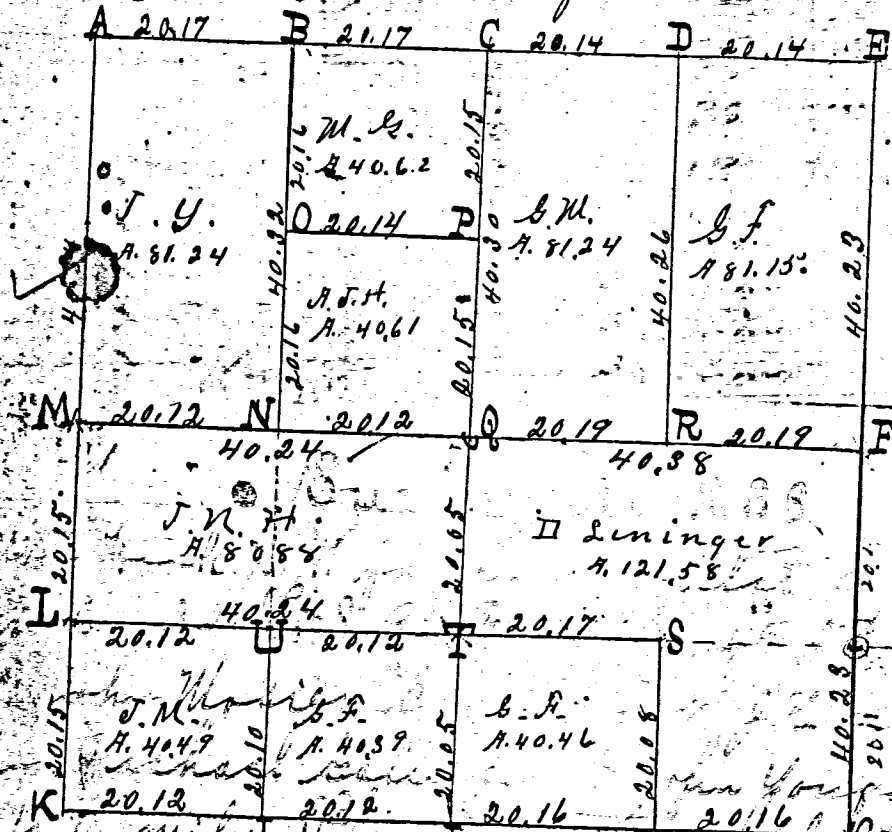 A 20.17 B 20.17 C 20.14 D 20.14 E
20.16
M. G.
A 40.62
20.15
J. Y.
A. 81.24
40.32
O 20.14 P
40.30
G. M.
A. 81.24
40.26
G. F.
A 81.15
40.23
A. J. H.
A. 40.61
20.16
20.15
M 20.12 N 20.12 Q 20.19 R 20.19 F
40.24 40.38
20.15
J. N. H.
A. 80.88
20.05
D Leninger
A. 121.58
20.1
L 40.24
20.12 U 20.12 T 20.17 S
20.15
J. M.
A. 40.49
20.10
A. 40.39
20.05
A. 40.46
20.08
40.23
20.11
K 20.12 20.12 20.16 20.16